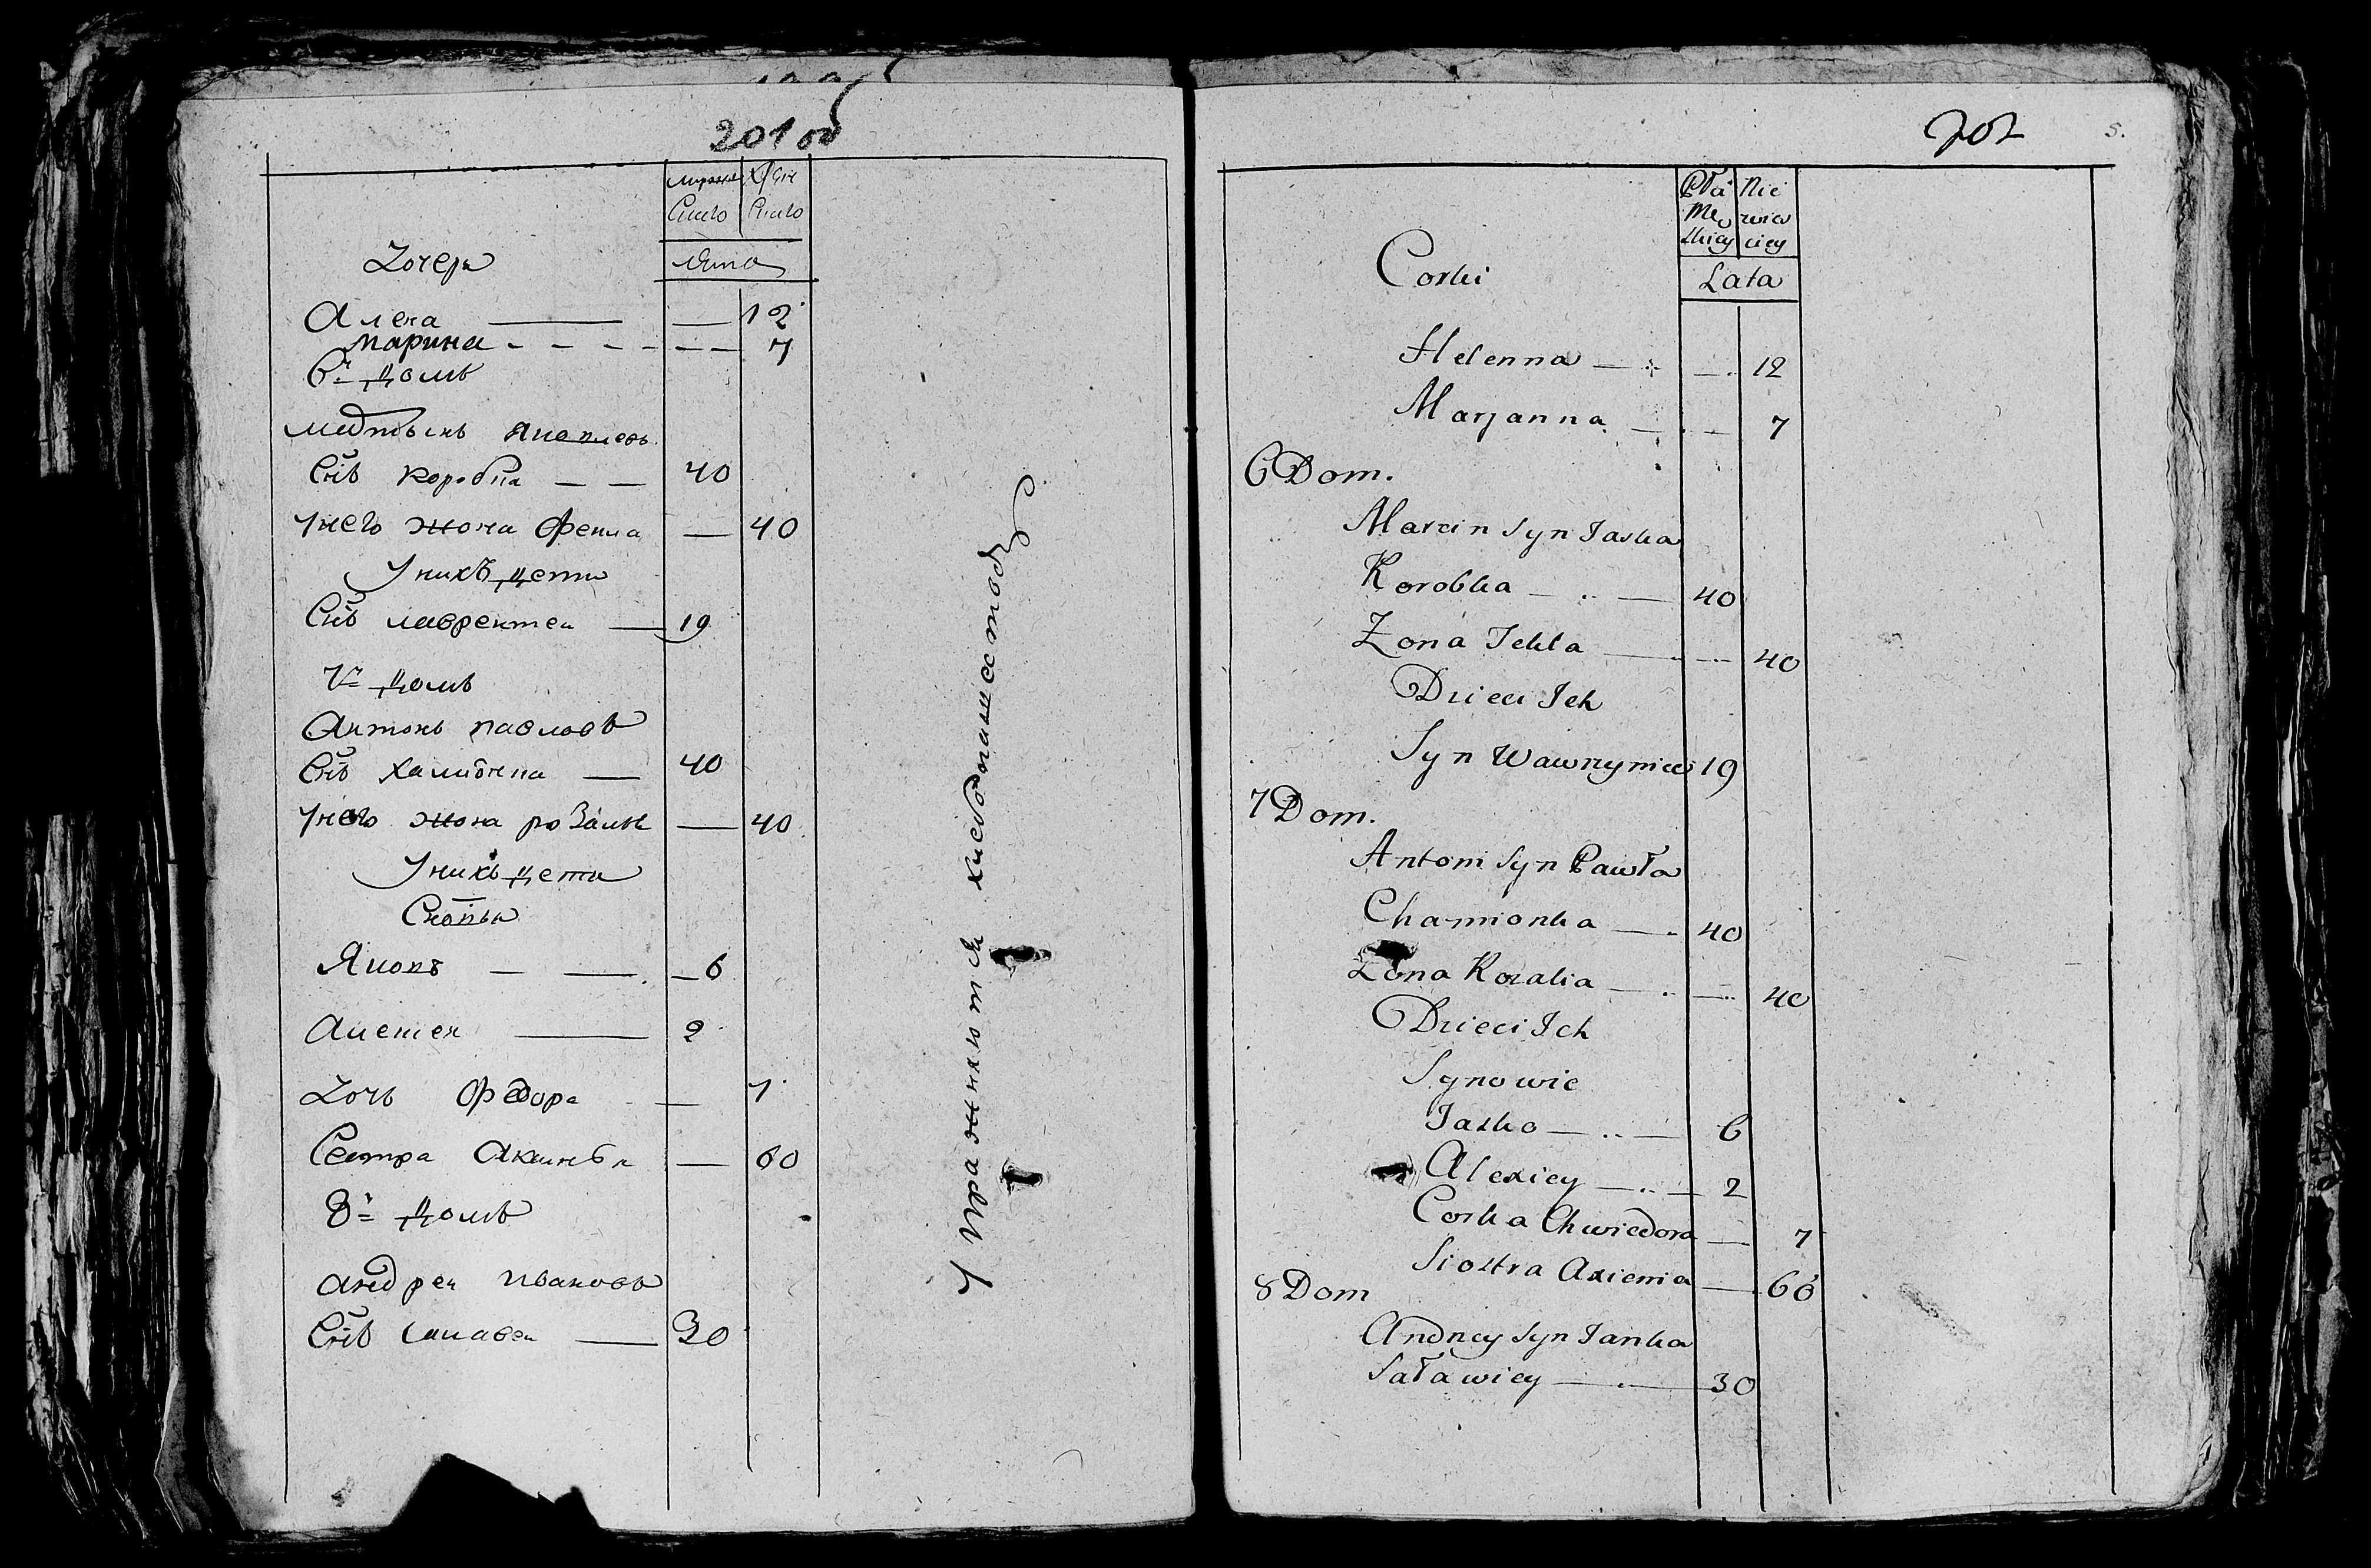 201 об
мужеска женска
Полу Полу
Лета
Дочери
Алена — — 12
Марина - - - - - — 7
6й домъ
Мартынъ Яковлевъ
Снъ коробка — — 40
у него жена Фекла — 40
у нихъ дети
Снъ лаврентеи — 19
7й домъ
Антонъ павловъ
Снъ хамионка — 40
у него жена розалия — 40
у нихъ дети
Сновья
Яковъ — — 6
Алексеи — 2
Дочь Федора — 7
Сестра Аксинья — 60
8й домъ
Андреи ивановъ
Снъ салавеи — 30
упражняются хлебопашествомъ
202 5.
Płci Nie
Męz wie
skiey ciey
Lata
Corki
Helenna — — 12
Marjanna — — 7
6 Dom.
Marcin Syn Jaska
Korobka — .. — 40
Zona Tekla — .. — 40
Dzieci Ich
Syn Wawrzyniec 19
7 Dom.
Antoni Syn Pawła
Chamionka — . 40
Zona Rozalia — . — 40
Dzieci Ich
Synowie
Jasko — .. — 6
Alexiey — .. — 2
Corka Chwiedora — 7
Siostra Axienia — 60
8 Dom
Andrzey Syn Janka
Saławiey — . — 30